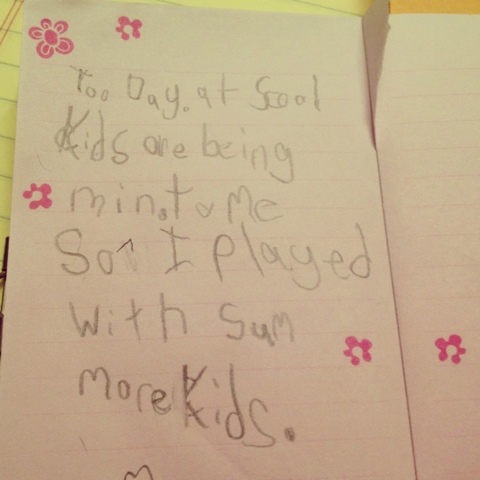 Too Day. at Scool
Kids are being
min. to Me
So I played
with sum
more Kids.